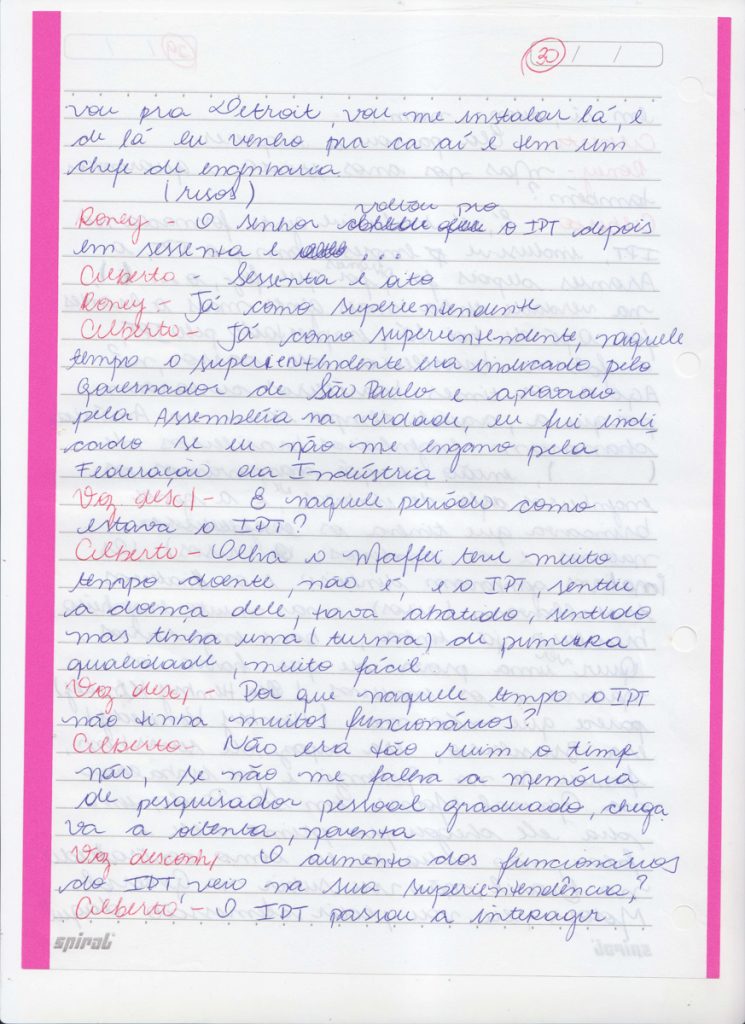 30 / /
vou pra Detroit, vou me instalar lá, e
de lá eu venho pra ca aí é tem um
chefe de engenharia
(risos)
Roney - O senhor voltou pro o IPT depois
em sessenta e ...
Gilberto - Sessenta e oito
Roney - Já como superientendente
Gilberto - Já como superientendente, naquele
tempo o superientendente era indicado pelo
Governador de São Paulo e aprovado
pela Assembléia na verdade, eu fui indi-
cado se eu não me engano pela
Federação da Indústria
Voz desc/ - E naquele período como
estava o IPT?
Gilberto - Olha o Maffei teve muito
tempo doente, não é, e o IPT, sentiu
a doença dele, tava abatido, sentido
mas tinha uma (turma) de primeira
qualidade, muito fácil
Voz desc/ - Por que naquele tempo o IPT
não tinha muitos funcionários?
Gilberto - Não era tão ruim o timp
não, se não me falha a memória
de pesquisador pessoal graduado, chega
va a oitenta, noventa
Voz desconh/ O aumento dos funcionários
do IPT, veio na sua superientendência,?
Gilberto - O IPT passou a interagir
spiral